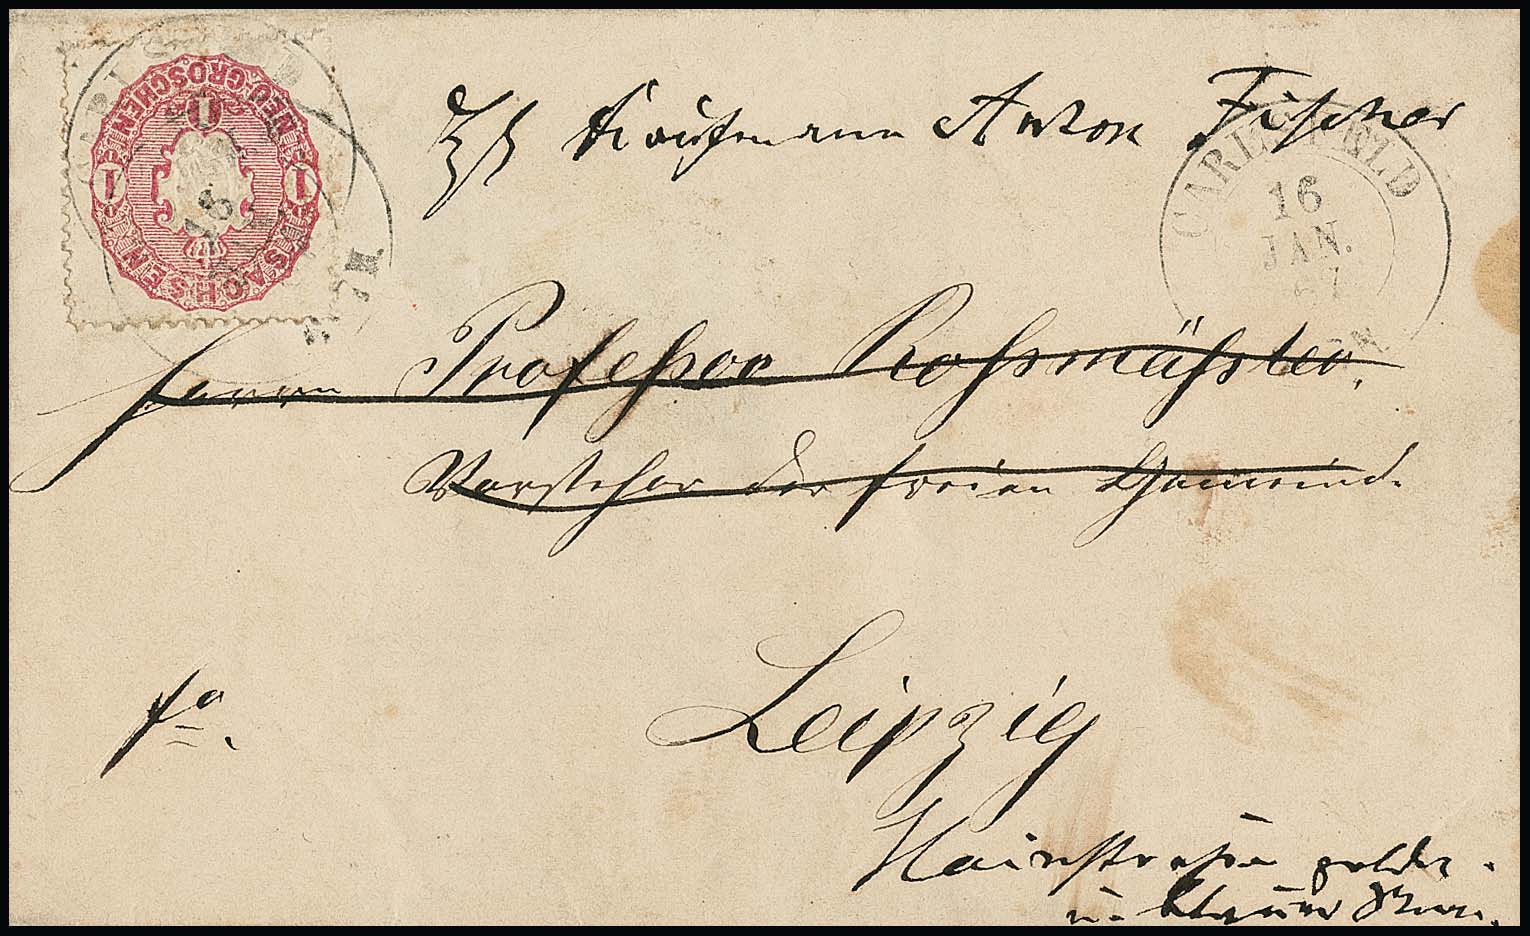 NEU-GROSCHEN
1 1 1
SACHSEN
CARLSFELD
16
Kaufmann Anton Fischer
CARLSFELD
16
JAN.
67
Herrn Professor Roßmäßler,
Vorsteher der freien Gemeinde
fo.
Leipzig
Hainstraße goldn.
u. blauer Stern.